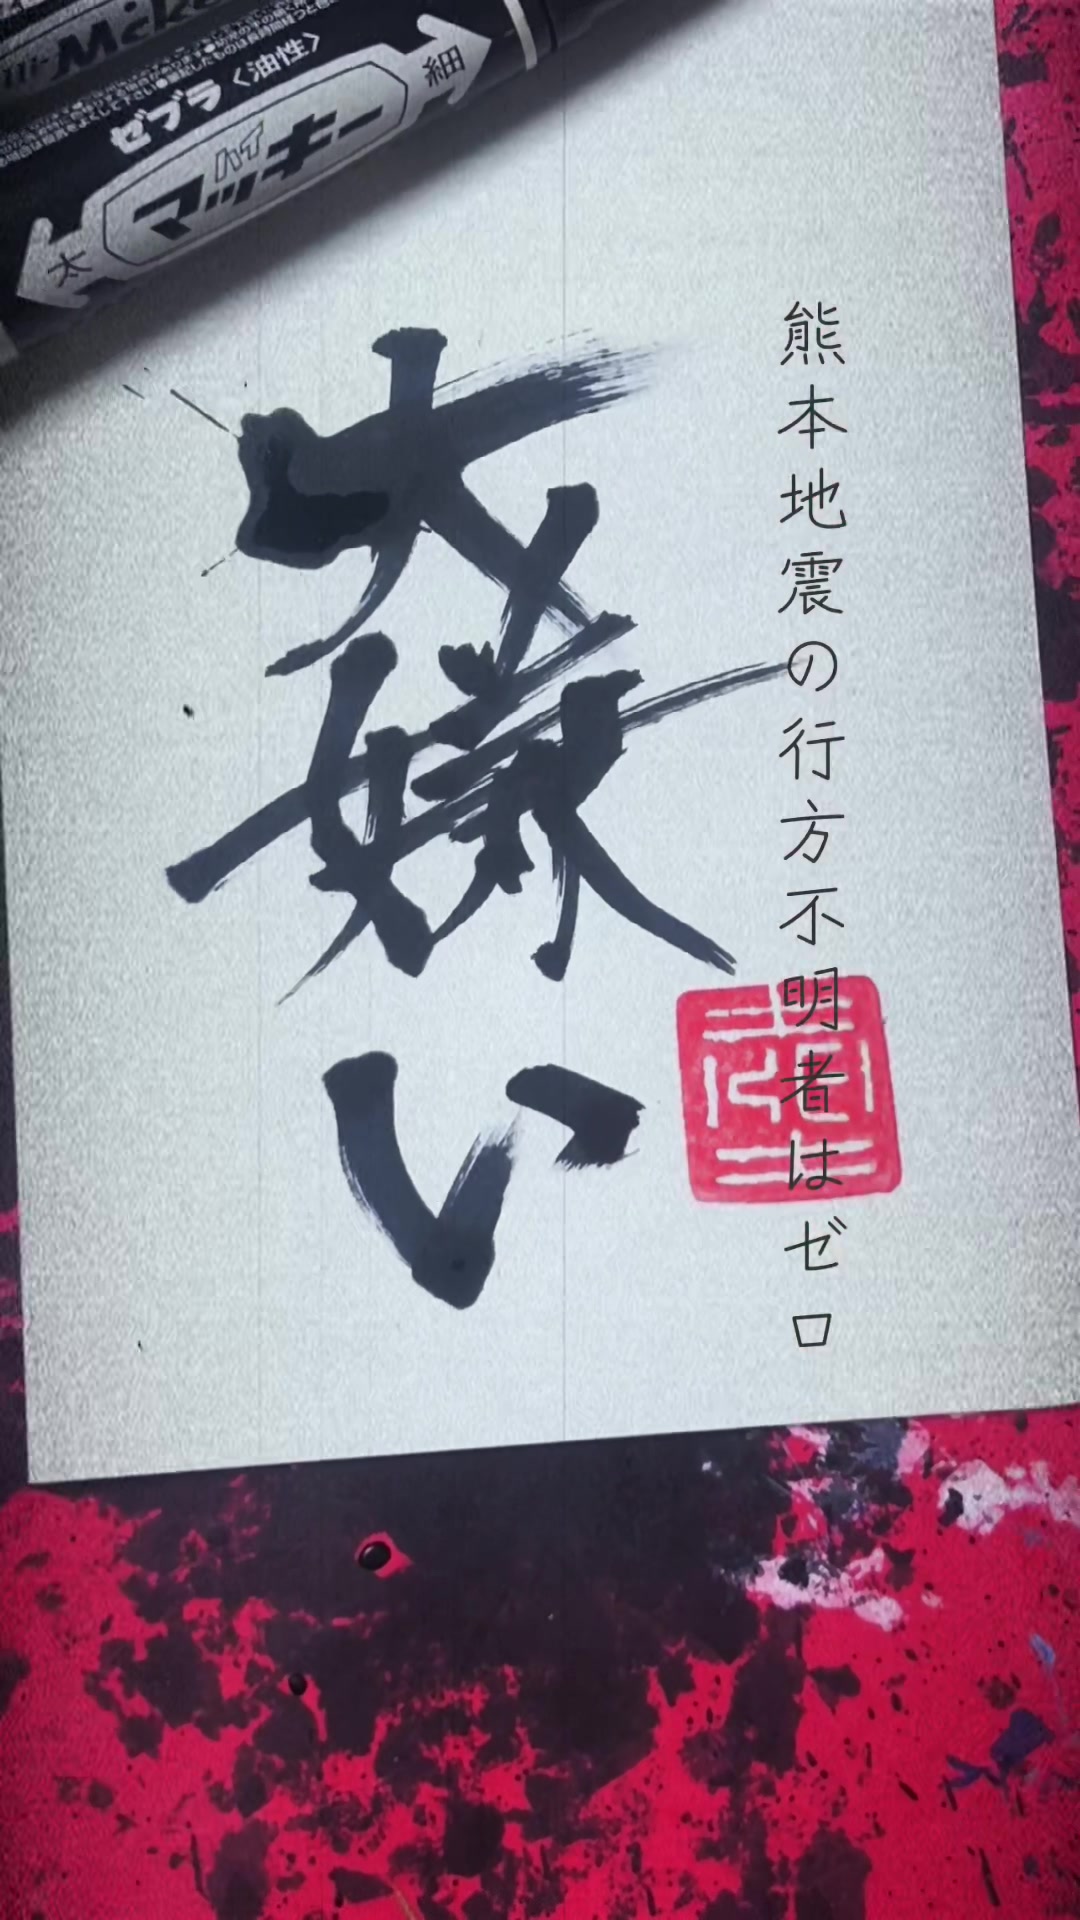 熊本地震の行方不明者はゼロ
大嫌い
ゼブラ〈油性〉
ハイ
マッキー
細
太